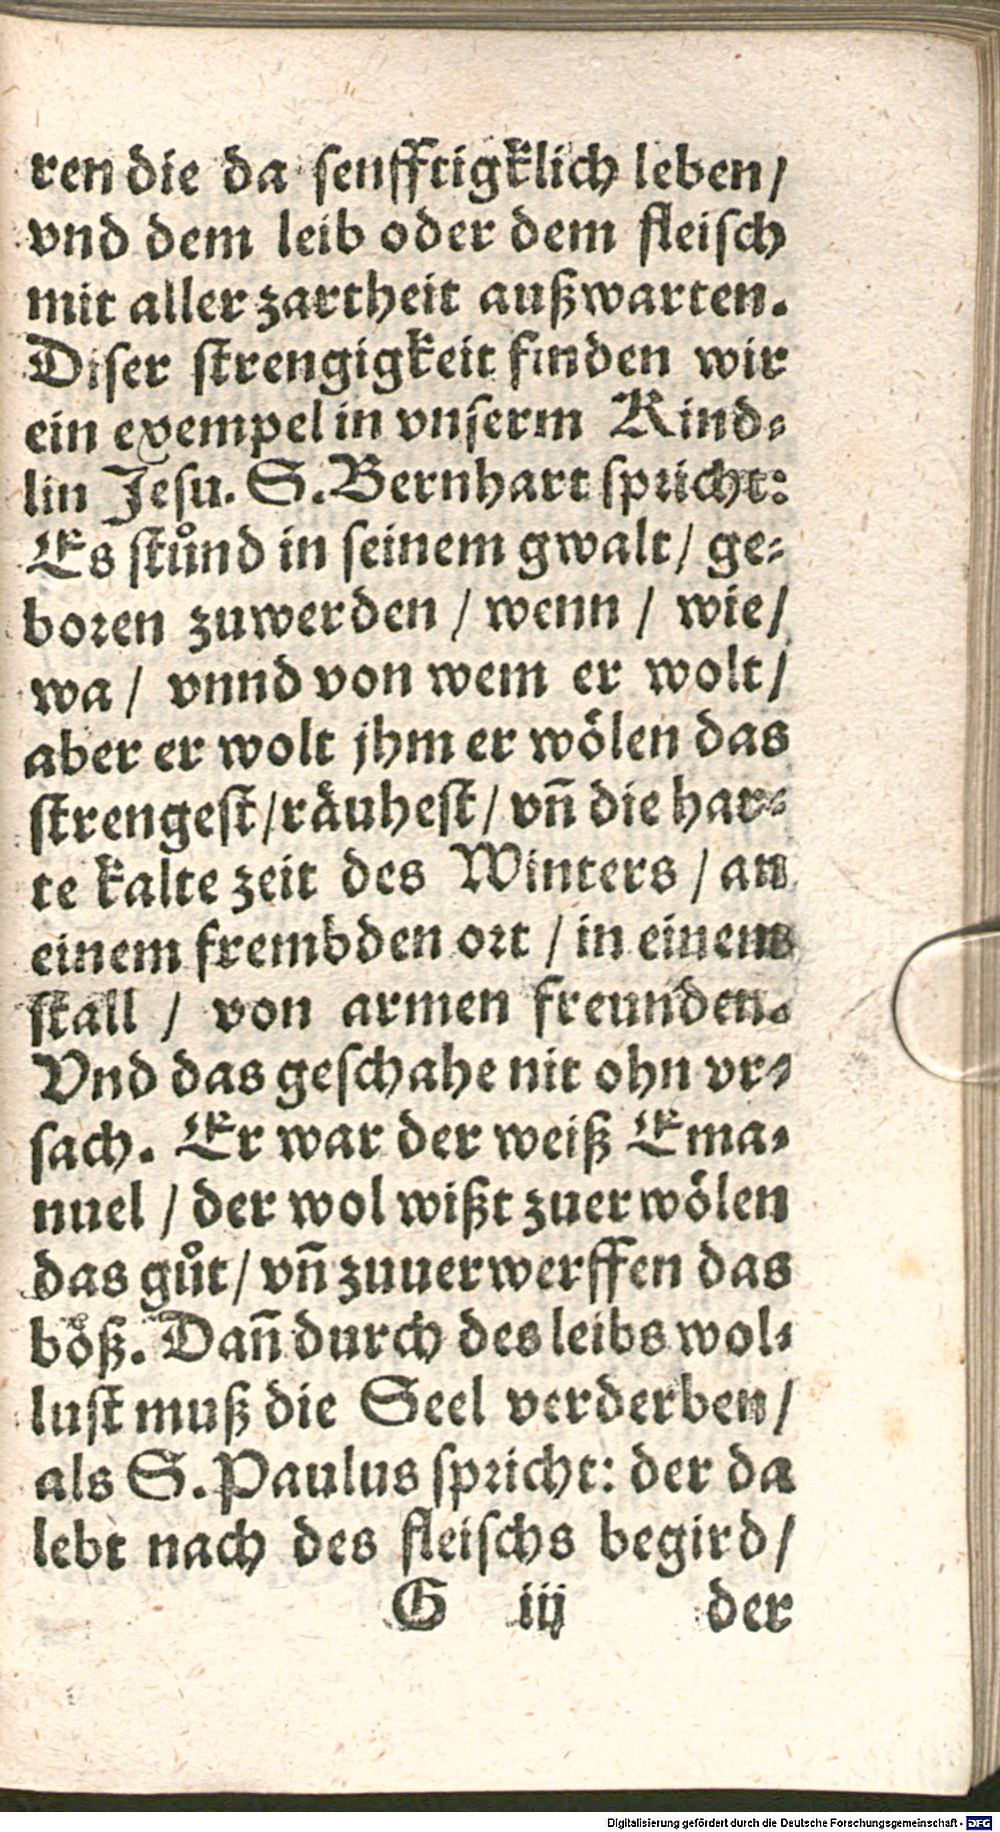 ren die da senfftigklich leben/
vnd dem leib oder dem fleisch
mit aller zartheit außwarten.
Diser strengigkeit finden wir
ein exempel in vnserm Kind-
lin Jesu. S. Bernhart spricht:
Es stůnd in seinem gwalt/ ge-
boren zuwerden / wenn / wie/
wa / vnnd von wem er wolt/
aber er wolt jhm er wölen das
strengest/räuhest/ vñ die har-
te kalte zeit des Winters / an
einem frembden ort / in einem
stall / von armen freunden.
Vnd das geschahe nit ohn vr-
sach. Er war der weiß Ema-
nuel / der wol wißt zuerwölen
das gůt/ vñ zuuerwerffen das
böß. Dañ durch des leibs wol-
lust muß die Seel verderben/
als S. Paulus spricht: der da
lebt nach des fleischs begird/
G iij der
Digitalisierung gefördert durch die Deutsche Forschungsgemeinschaft - DFG